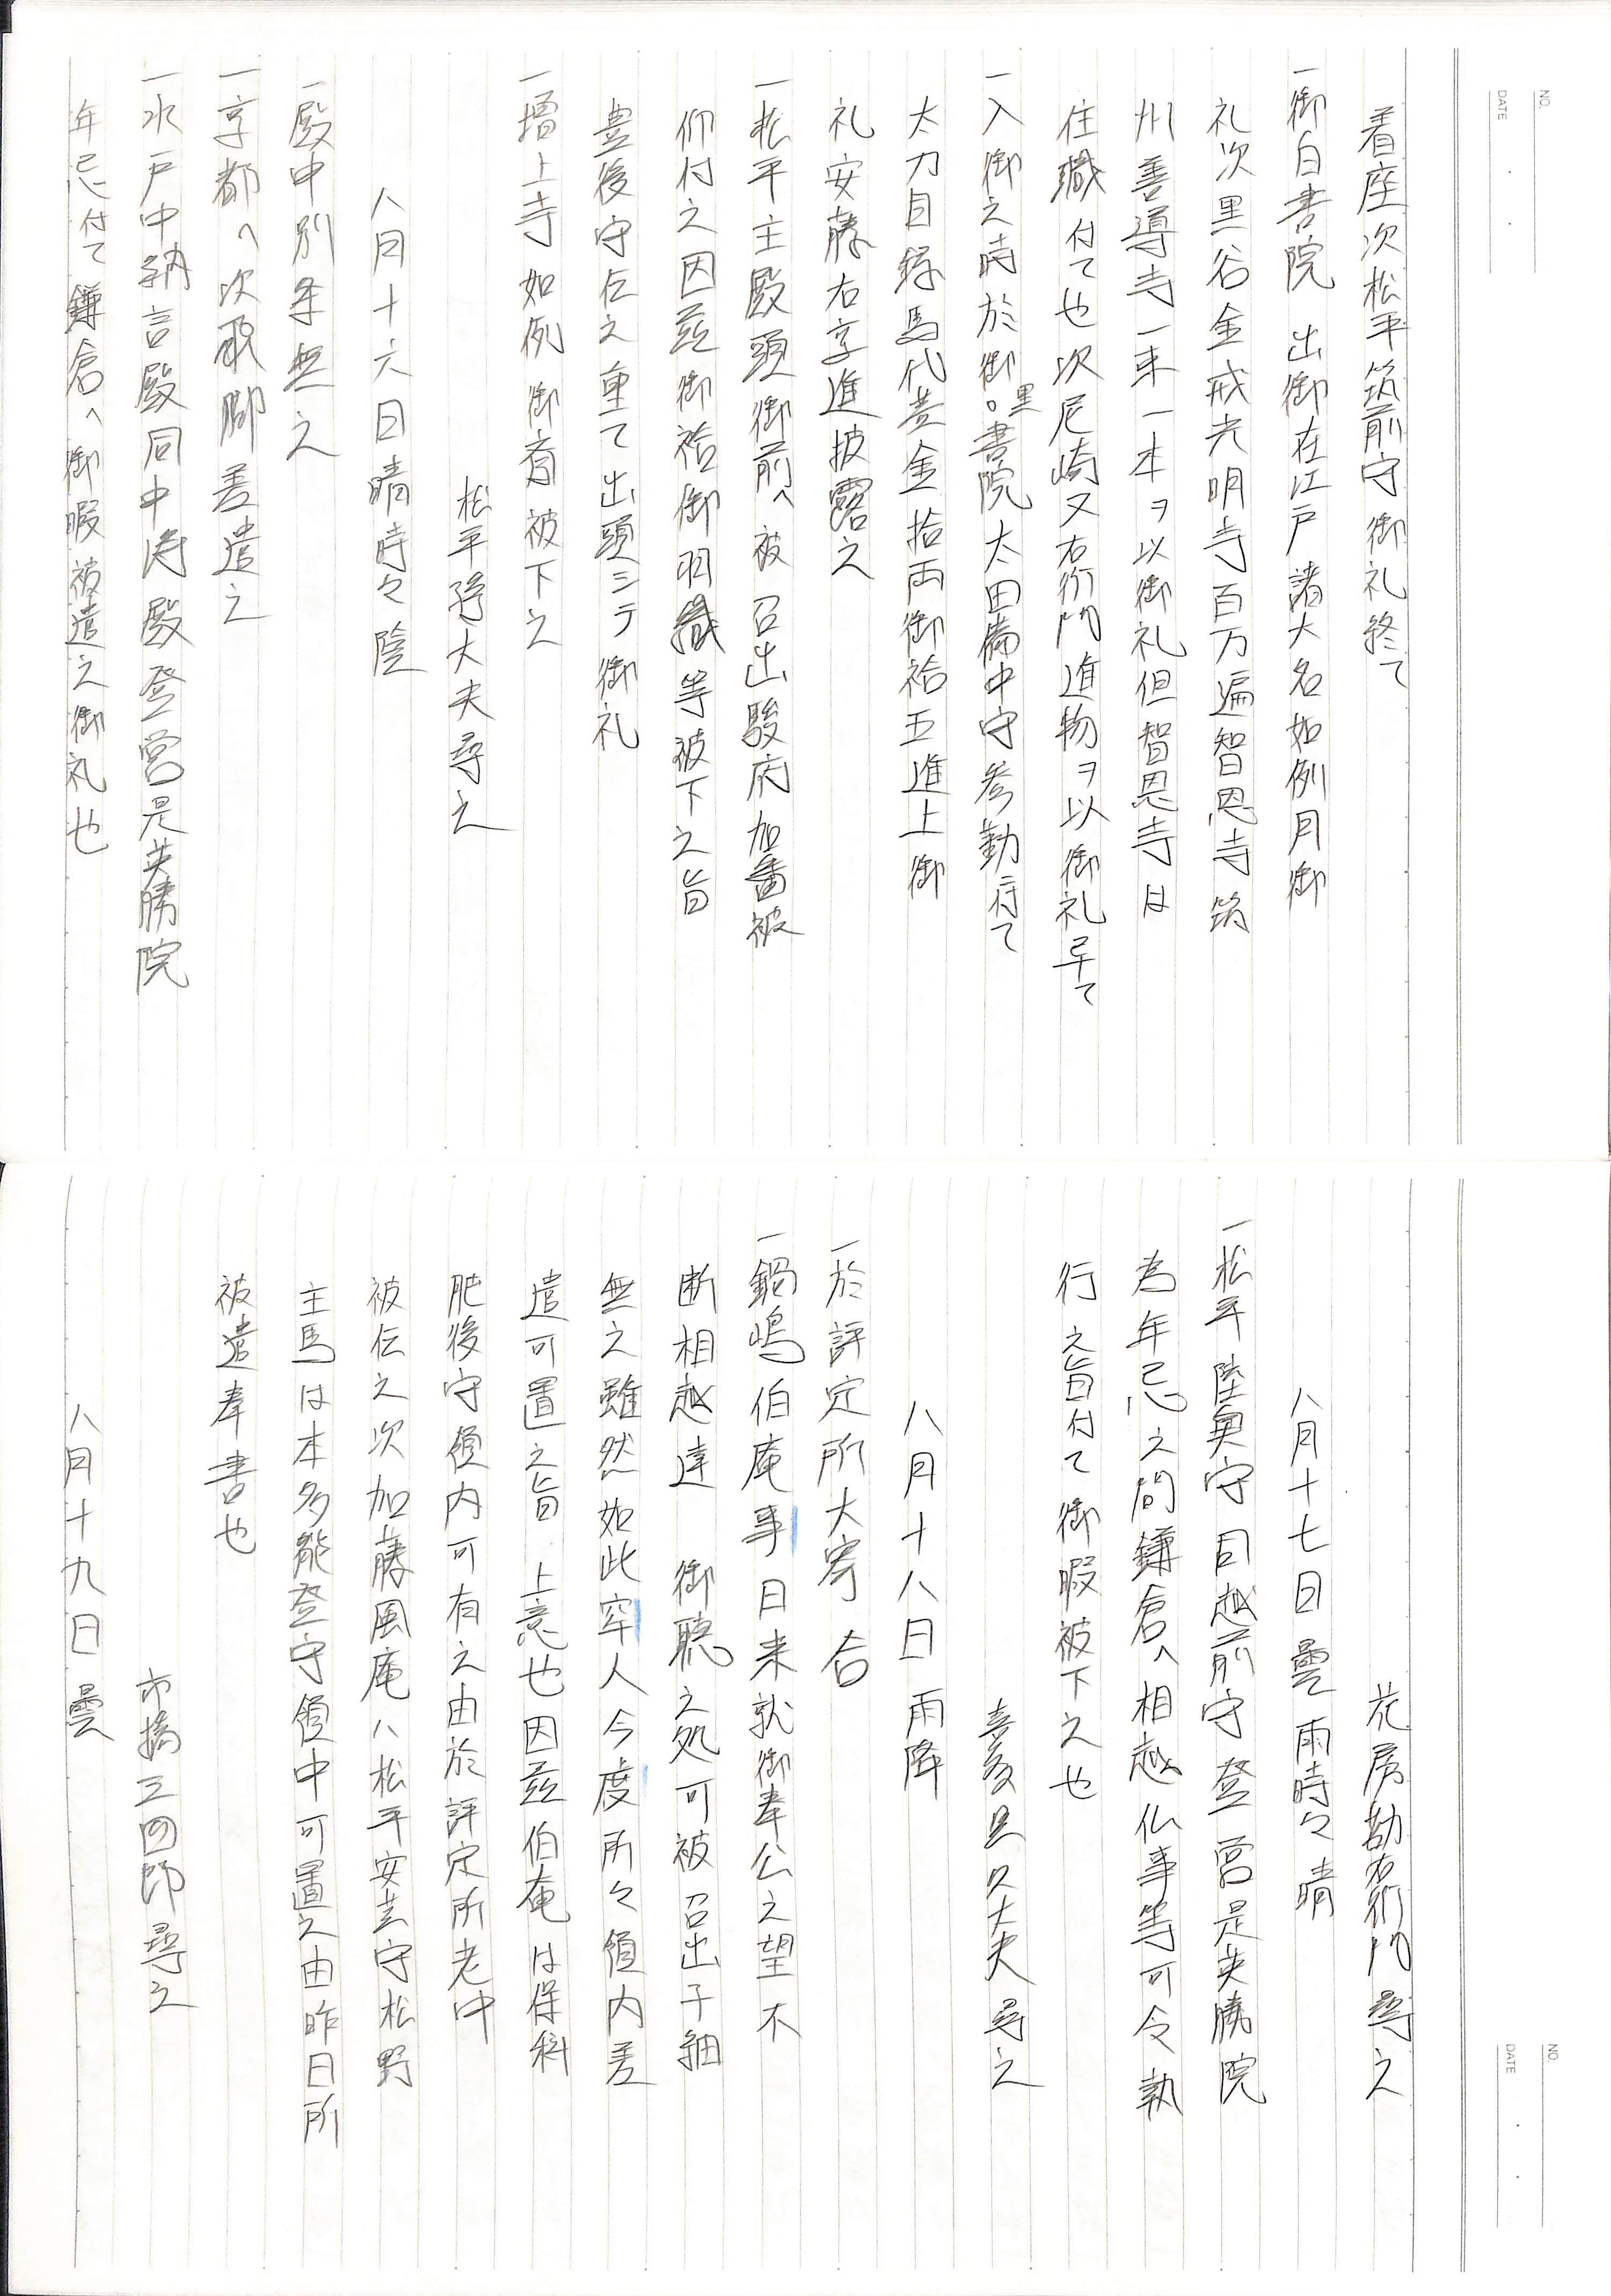 着座次松平筑前守御礼終て
一御白書院 出御在江戸諸大名如例月御
礼次黒谷金戒光明寺百万遍智恩寺筑
州善導寺一束一本ヲ以御礼但智恩寺は
住職付て也次尼崎又右衛門進物ヲ以御礼早て
一入御之時於御。黒書院太田備中守参勤付て
太刀目録馬代黄金拾両御袷五進上御
礼安藤右京進披露之
一松平主殿頭御前へ被召出駿府加番被
仰付之因茲御袷御羽織等被下之旨
豊後守伝之重て出頭シテ御礼
一増上寺如例御斎被下之
松平隼大夫尋之
八月十六日晴時々陰
一殿中別条無之
一京都へ次飛脚差遣之
一水戸中納言殿同中将殿登営是英勝院
年忌付て鎌倉へ御暇被遣之御礼也
花房勘右衛門尋之
八月十七日曇雨時々晴
一松平陸奥守同越前守登営是英勝院
為年忌之間鎌倉へ相越仏事等可令執
行之旨付て御暇被下之也
喜多見久大夫尋之
八月十八日雨降
一於評定所大寄合
一鍋嶋伯庵事日来就御奉公之望不
断相越達 御聴之処可被召出子細
無之雖然如此牢人今度所々領内差
遣可置之旨 上意也因茲伯庵は保科
肥後守領内可有之由於評定所老中
被伝之次加藤風庵ハ松平安芸守松野
主馬は本多能登守領中可置之由昨日所
被遣奉書也
市橋三四郎尋之
八月十九日曇
NO.
DATE
NO.
DATE